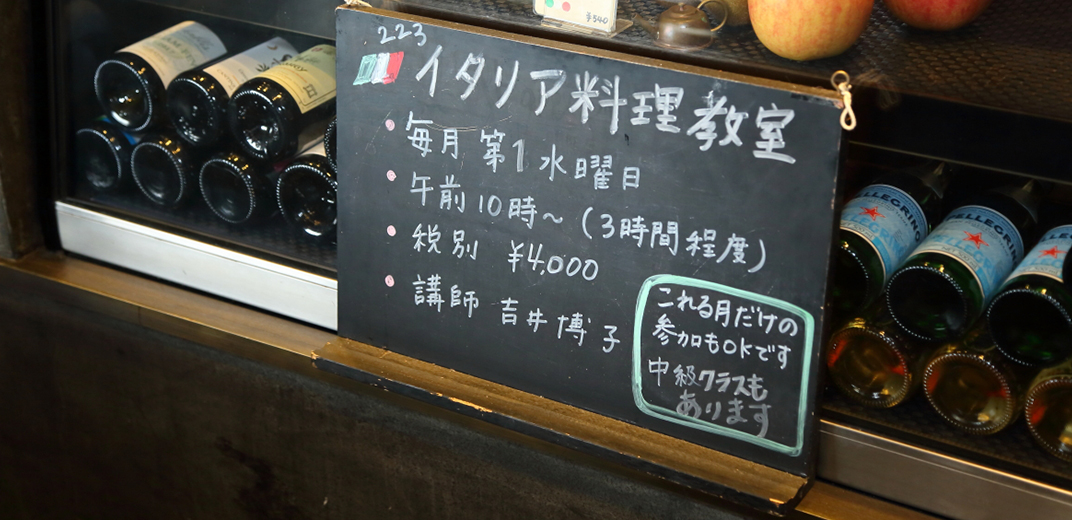 ¥540
223
イタリア料理教室
毎月 第1 水曜日
午前10時〜 (3時間程度)
税別 ¥4,000
講師 吉井 博子
これる月だけの
参加もOKです
中級クラスも
あります
PELLEGRINO
PELLEGRINO